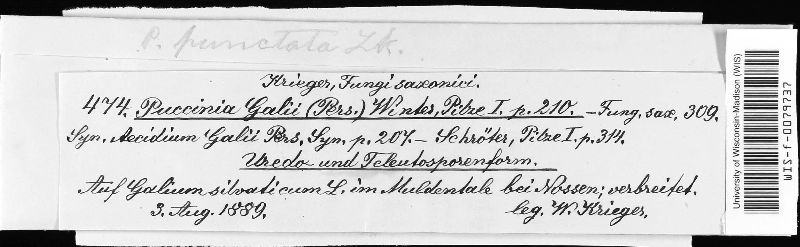 P. punctata Lk.
Krieger, Fungi saxonici.
474. Puccinia Galii (Pers.) Winter, Pilze I. p. 210. – Fung. sax. 309.
Syn. Aecidium Galii Pers. Syn. p. 207. – Schröter, Pilze I. p. 314.
Uredo und Teleutosporenform.
Auf Galium silvaticum L. im Muldentale bei Nossen; verbreitet.
3. Aug. 1889. leg. W. Krieger.
University of Wisconsin-Madison (WIS)
WIS-f-0079737